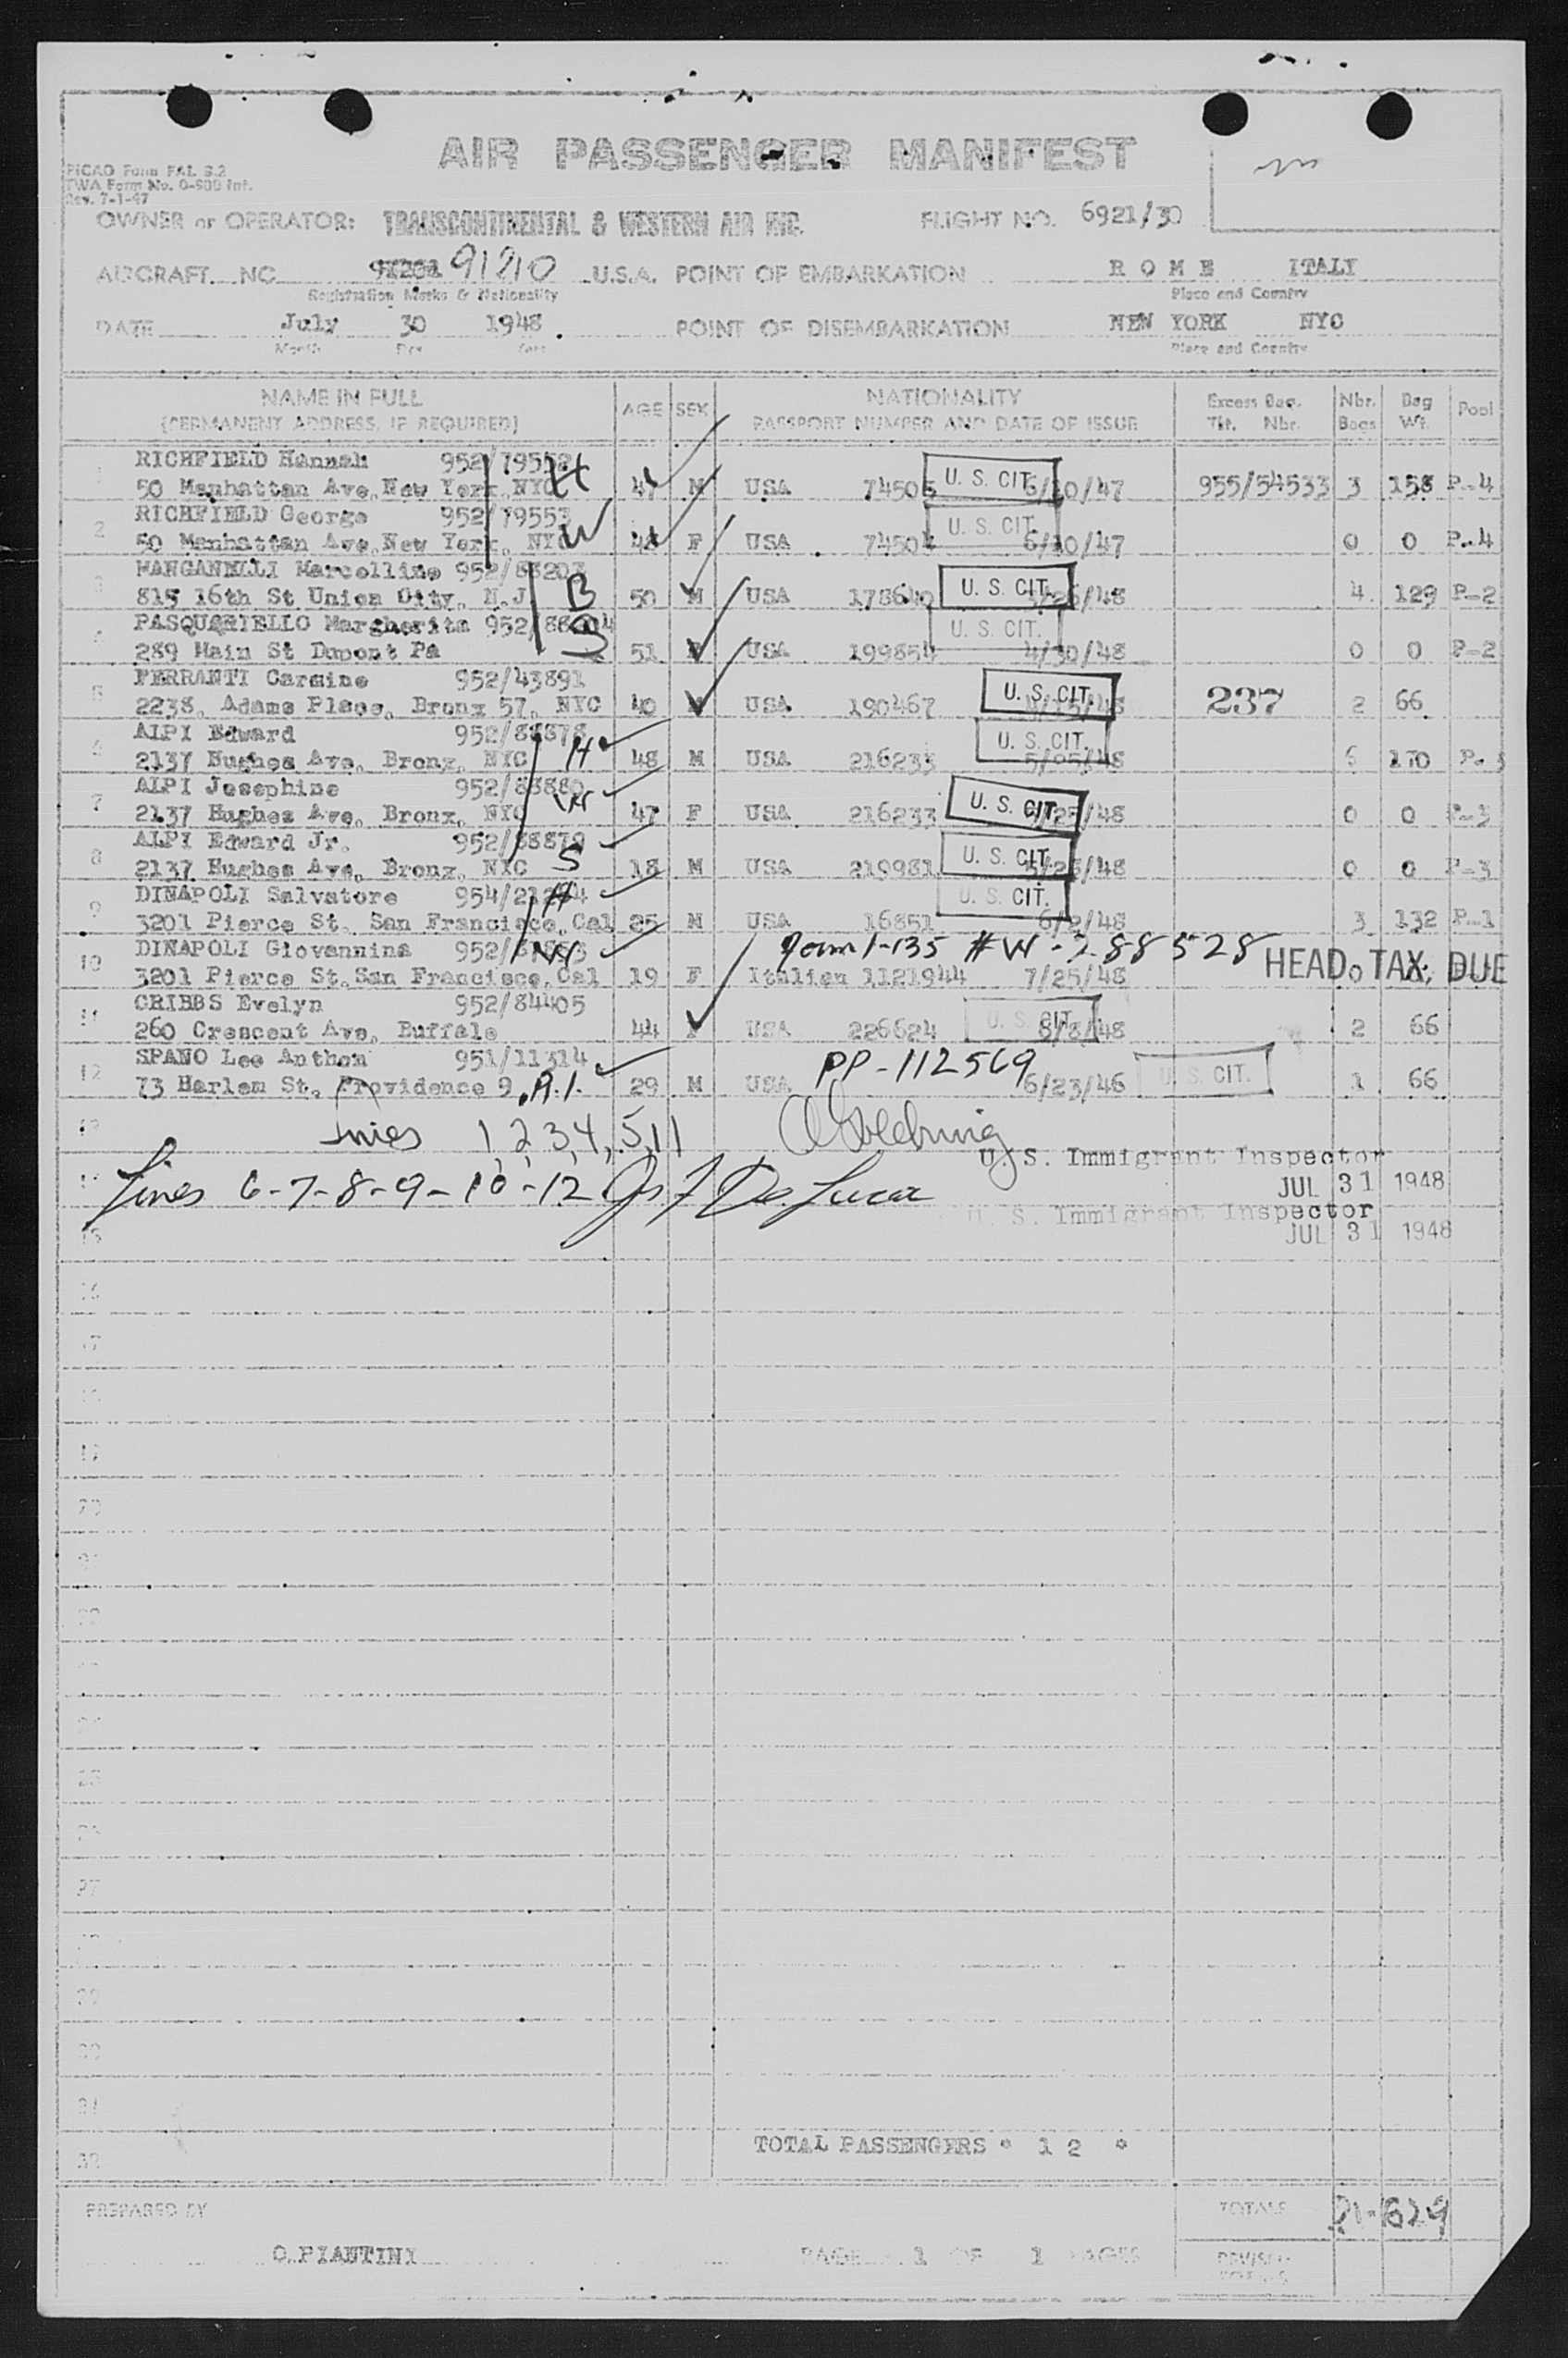 AIR PASSENGER MANIFEST
PICAO Form FAL 3.2
TWA Form No. 0-500 Int.
Rev. 7-1-47
OWNER or OPERATOR: TRANSCONTINENTAL & WESTERN AIR INC. FLIGHT NO. 6921/30
AIRCRAFT NC 91210 U.S.A. POINT OF EMBARKATION ROME ITALY
Registration Marks & Nationality Place and Country
DATE July 30 1948. POINT OF DISEMBARKATION NEW YORK NYC
Month Day Year Place and Country
NAME IN FULL AGE SEX NATIONALITY Excess Bag. Nbr. Bag Pool
(PERMANENT ADDRESS, IF REQUIRED) PASSPORT NUMBER AND DATE OF ISSUE Tkt. Nbr. Bags Wt.
1 RICHFIELD Hannah 952/79552 H
50 Manhattan Ave. New York, NYC 47 M USA 74505 U. S. CIT. 6/10/47 955/54533 3 158 P-4
2 RICHFIELD George 952/79553 W
50 Manhattan Ave. New York, NYC 48 F USA 74504 U. S. CIT. 6/10/47 0 0 P-4
3 MANGANELLI Marcelline 952/88203
815 16th St Union City, N.J B 50 M USA 178640 U. S. CIT. /48 4 129 P-2
4 PASQUARIELLO Margherita
289 Main St Dupont Pa S 51 F USA 199854 U. S. CIT. 4/30/48 0 0 P-2
5 FERRANTI Carmine 952/43891
2238, Adams Place, Bronx 57, NYC 40 USA 190467 U. S. CIT. 237 2 66
6 ALPI Edward 952/88878
2137 Hughes Ave, Bronx, NYC H 48 M USA 216233 U. S. CIT. 5/25/48 6 170 P-3
7 ALPI Josephine 952/88880
2137 Hughes Ave, Bronx, NYC W 47 F USA 216233 U. S. CIT. 5/25/48 0 0 P-3
8 ALPI Edward Jr. 952/88879
2137 Hughes Ave, Bronx, NYC S 18 M USA 219981 U. S. CIT. /48 0 0 P-3
9 DINAPOLI Salvatore H
3201 Pierce St. San Francisco, Cal 25 M USA 16851 U. S. CIT. 6/2/48 3 132 P-1
10 DINAPOLI Giovannina W Form I-135 #W-288528
3201 Pierce St. San Francisco, Cal 19 F Italian 1121944 7/25/48 HEAD TAX DUE
11 CRIBBS Evelyn 952/84405
260 Crescent Ave, Buffalo 44 F USA 226624 U. S. CIT. /48 2 66
12 SPANO Lee Anthom 951/11314 PP-112569
73 Harlem St, Providence 9, R.I. 29 M USA 6/23/46 U. S. CIT. 1 66
lines 1, 2, 3, 4, 5, 11
U. S. Immigrant Inspector
JUL 31 1948
Lines 6-7-8-9-10-12 Jos F De Lucar
U. S. Immigrant Inspector
JUL 31 1948
15
16
17
18
19
20
21
22
25
27
29
30
31
32
TOTAL PASSENGERS * 12 *
PREPARED BY TOTALS 21-829
O PIANTINI PAGE 1 OF 1 PAGES REVISED TOTALS